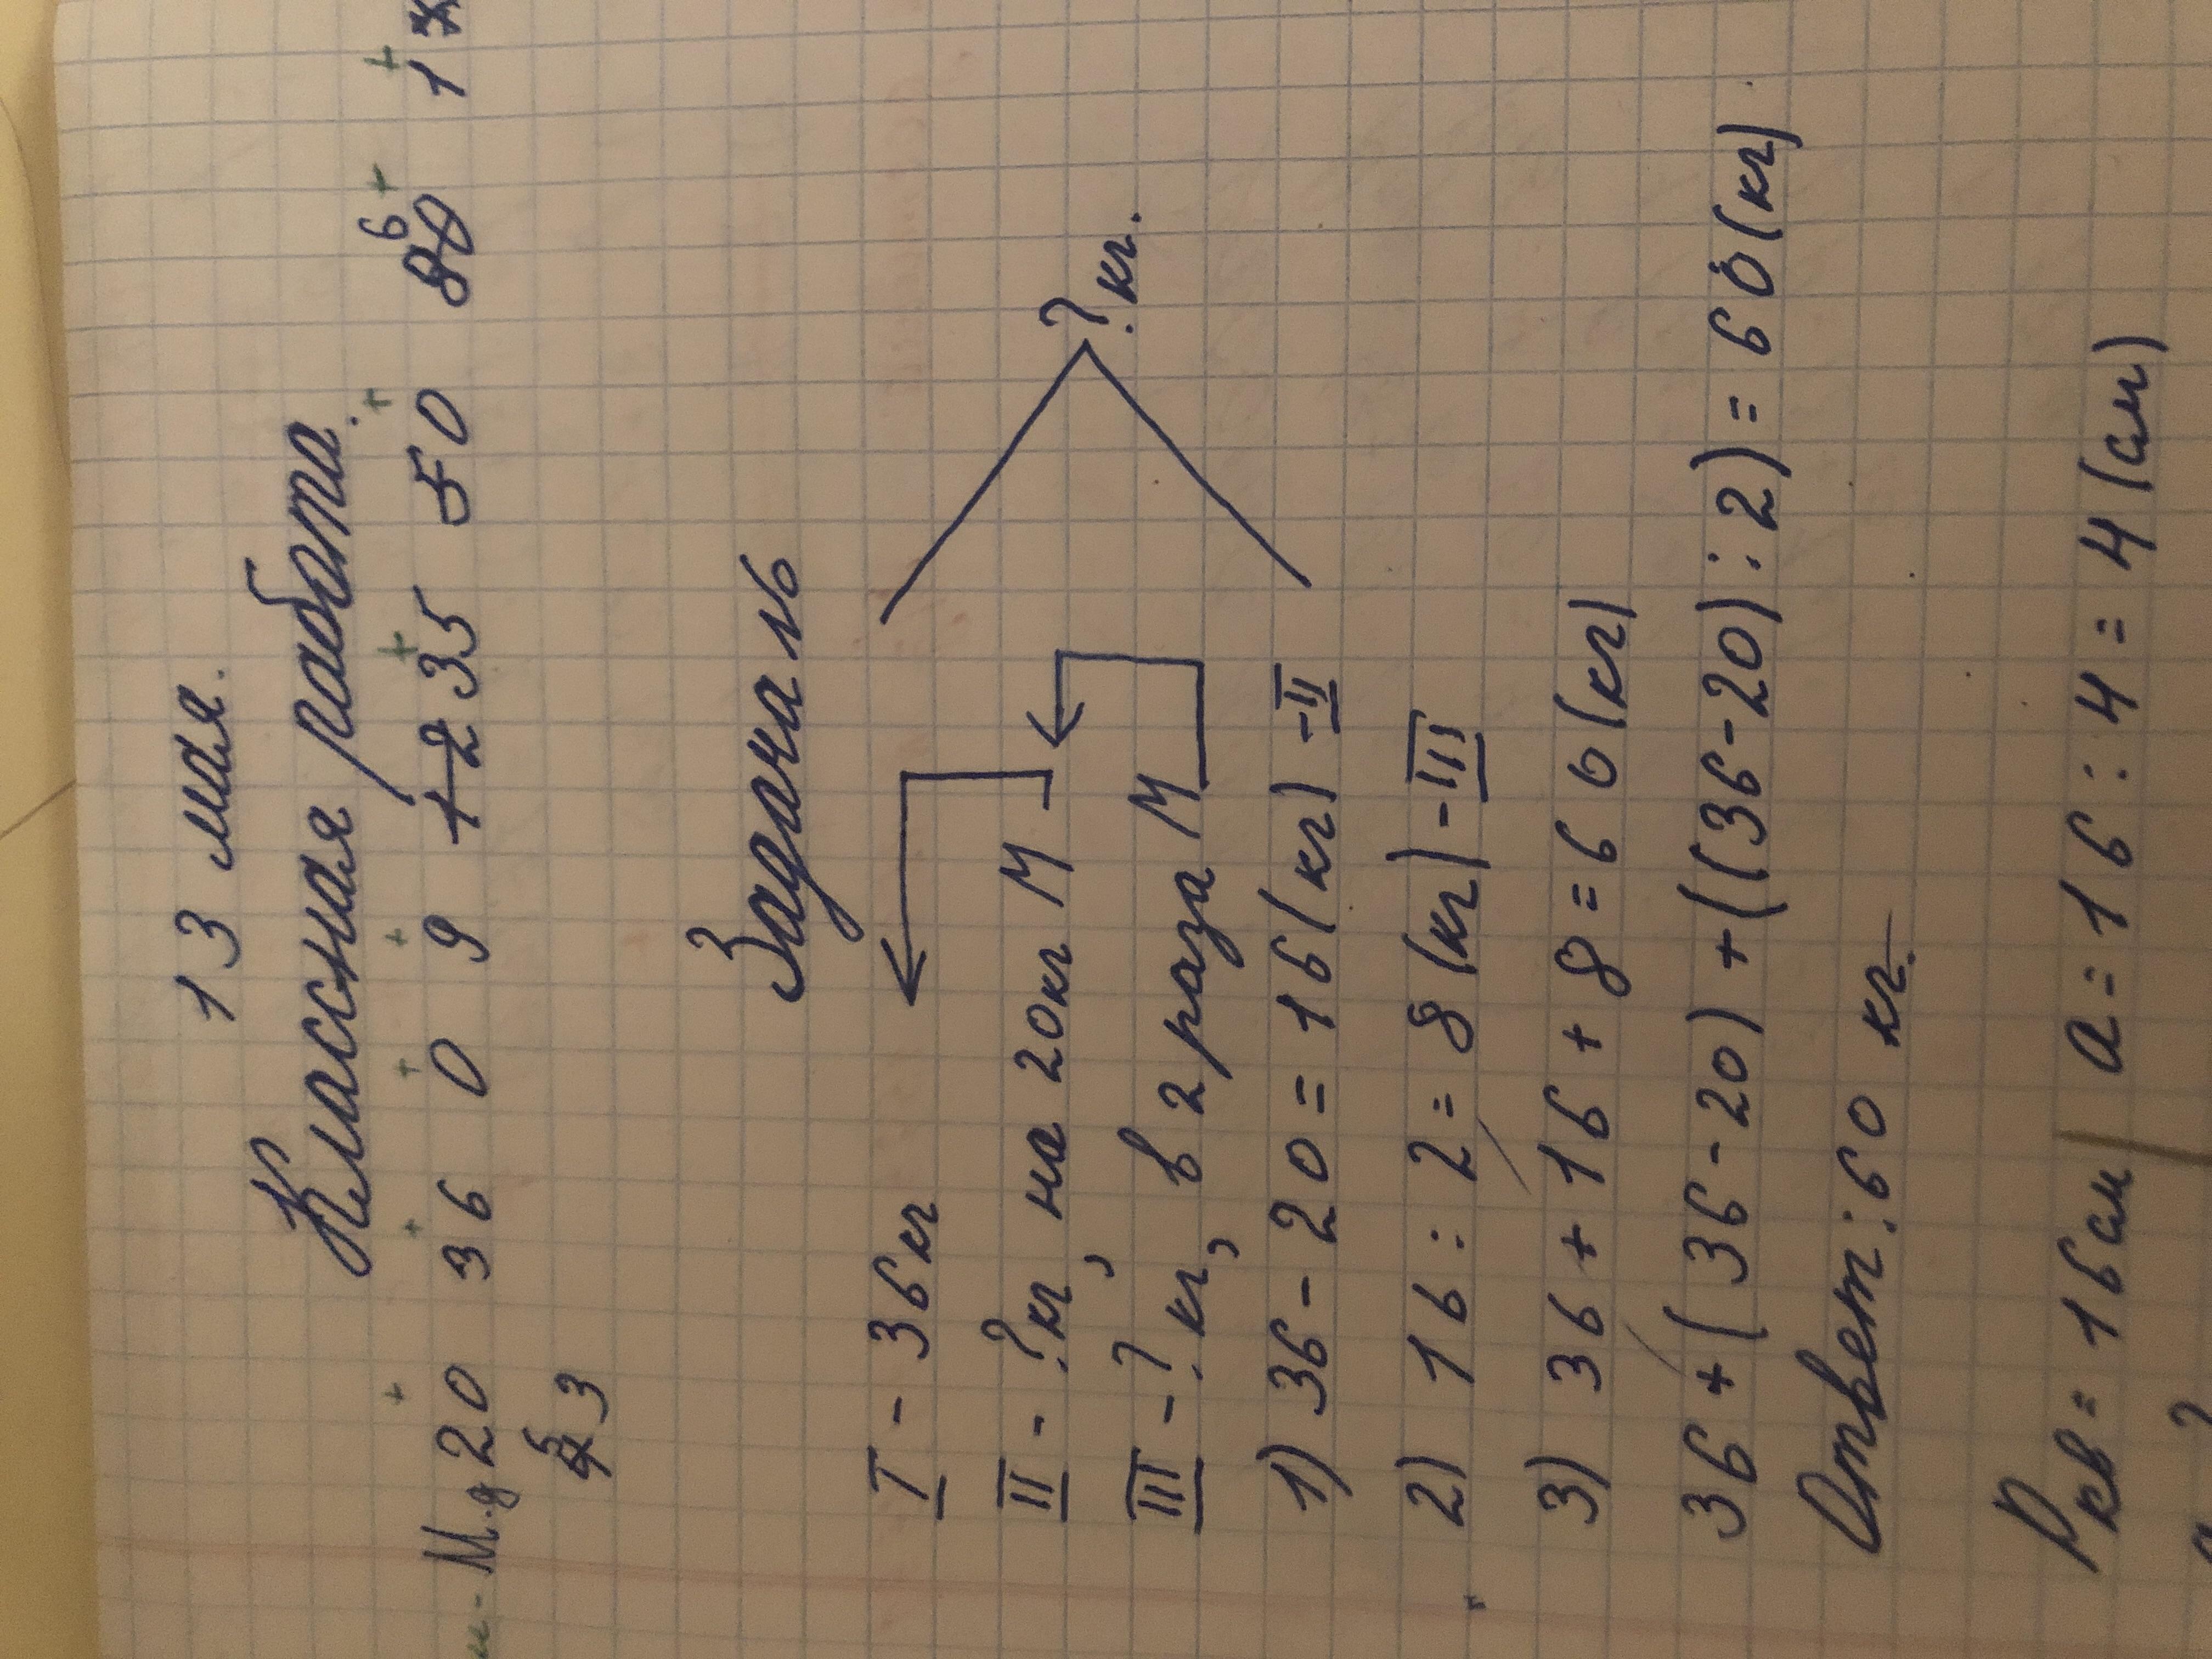 13 мая.
Классная работа.
М.д 20 36 0 9 12 35 50 80 6 1
3
Задача №6
I - 36кг
II - ?кг, на 20кг М
?кг.
III - ? кг, в 2 раза М
1) 36 - 20 = 16 (кг) - II
2) 16 : 2 = 8 (кг) - III
3) 36 + 16 + 8 = 60 (кг)
36 + (36 - 20) + ((36 - 20) : 2) = 60 (кг).
Ответ: 60 кг.
Pкв = 16см a = 16 : 4 = 4 (см)
?